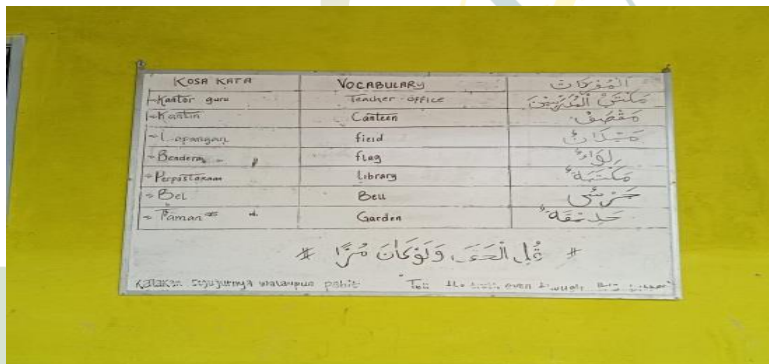 KOSA KATA VOCABULARY المفردات
- Kantor guru Teacher office مكتب المدرسين
- Kantin Canteen مقصف
- Lapangan field ميدان
- Bendera flag لواء
- Perpustakaan Library مكتبة
- Bel Bell جرس
- Taman Garden حديقة
# قُلِ الْحَقَّ وَلَوْ كَانَ مُرًّا #
Katakan sejujurnya walaupun pahit Tell the truth even though